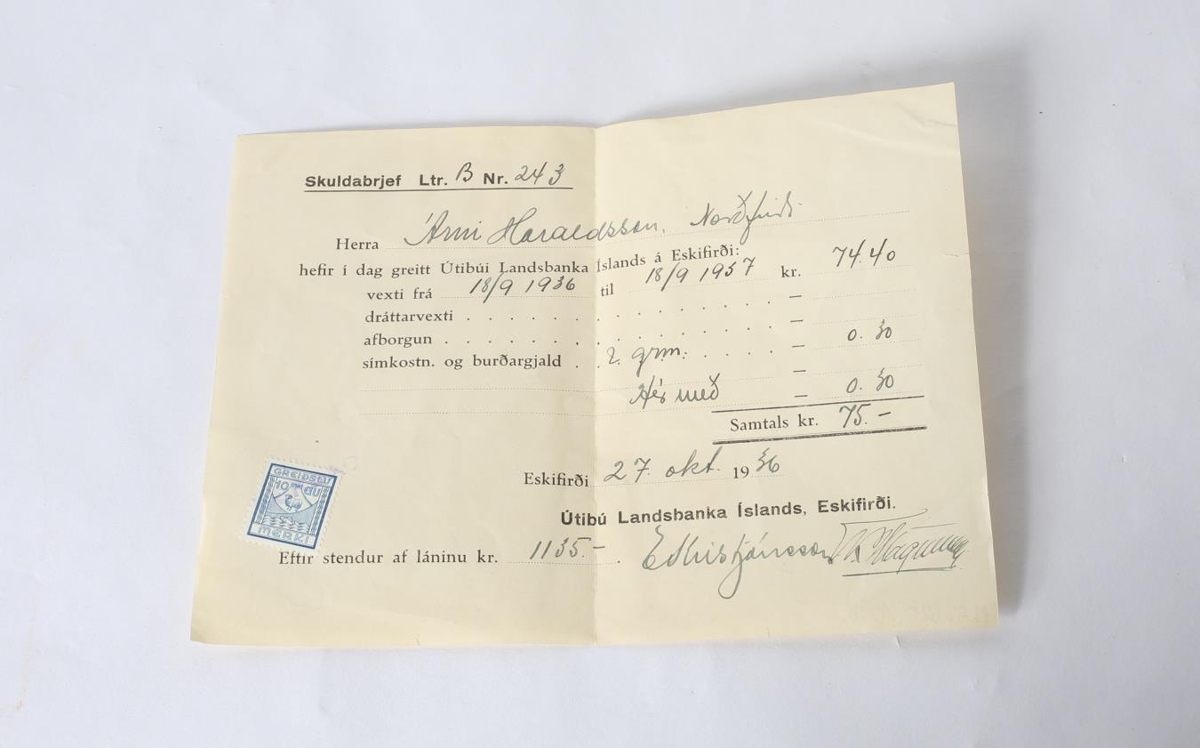 Skuldabrjef Ltr. B Nr. 243
Herra Árni Haraldsson, Norðfirði.
hefir í dag greitt Útibúi Landsbanka Íslands á Eskifirði:
vexti frá 18/9 1936 til 18/9 1937 kr. 74.40
dráttarvexti . . . . . . . . . . . . . . —
afborgun . . . . . . . . . . . . . . —
símkostn. og burðargjald . . 2. grm. . . . . — 0.30
Hér með — 0.30
Samtals kr. 75.-
Eskifirði 27. okt. 1936
Útibú Landsbanka Íslands, Eskifirði.
GREIÐSLU
10 AU
MERKI
Eftir stendur af láninu kr. 1135.- . EKristjánsson